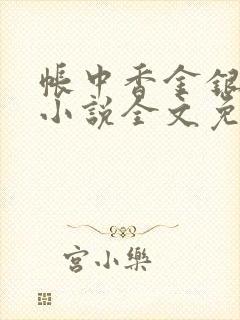 帳中香金銀
小說全文免
宮小樂